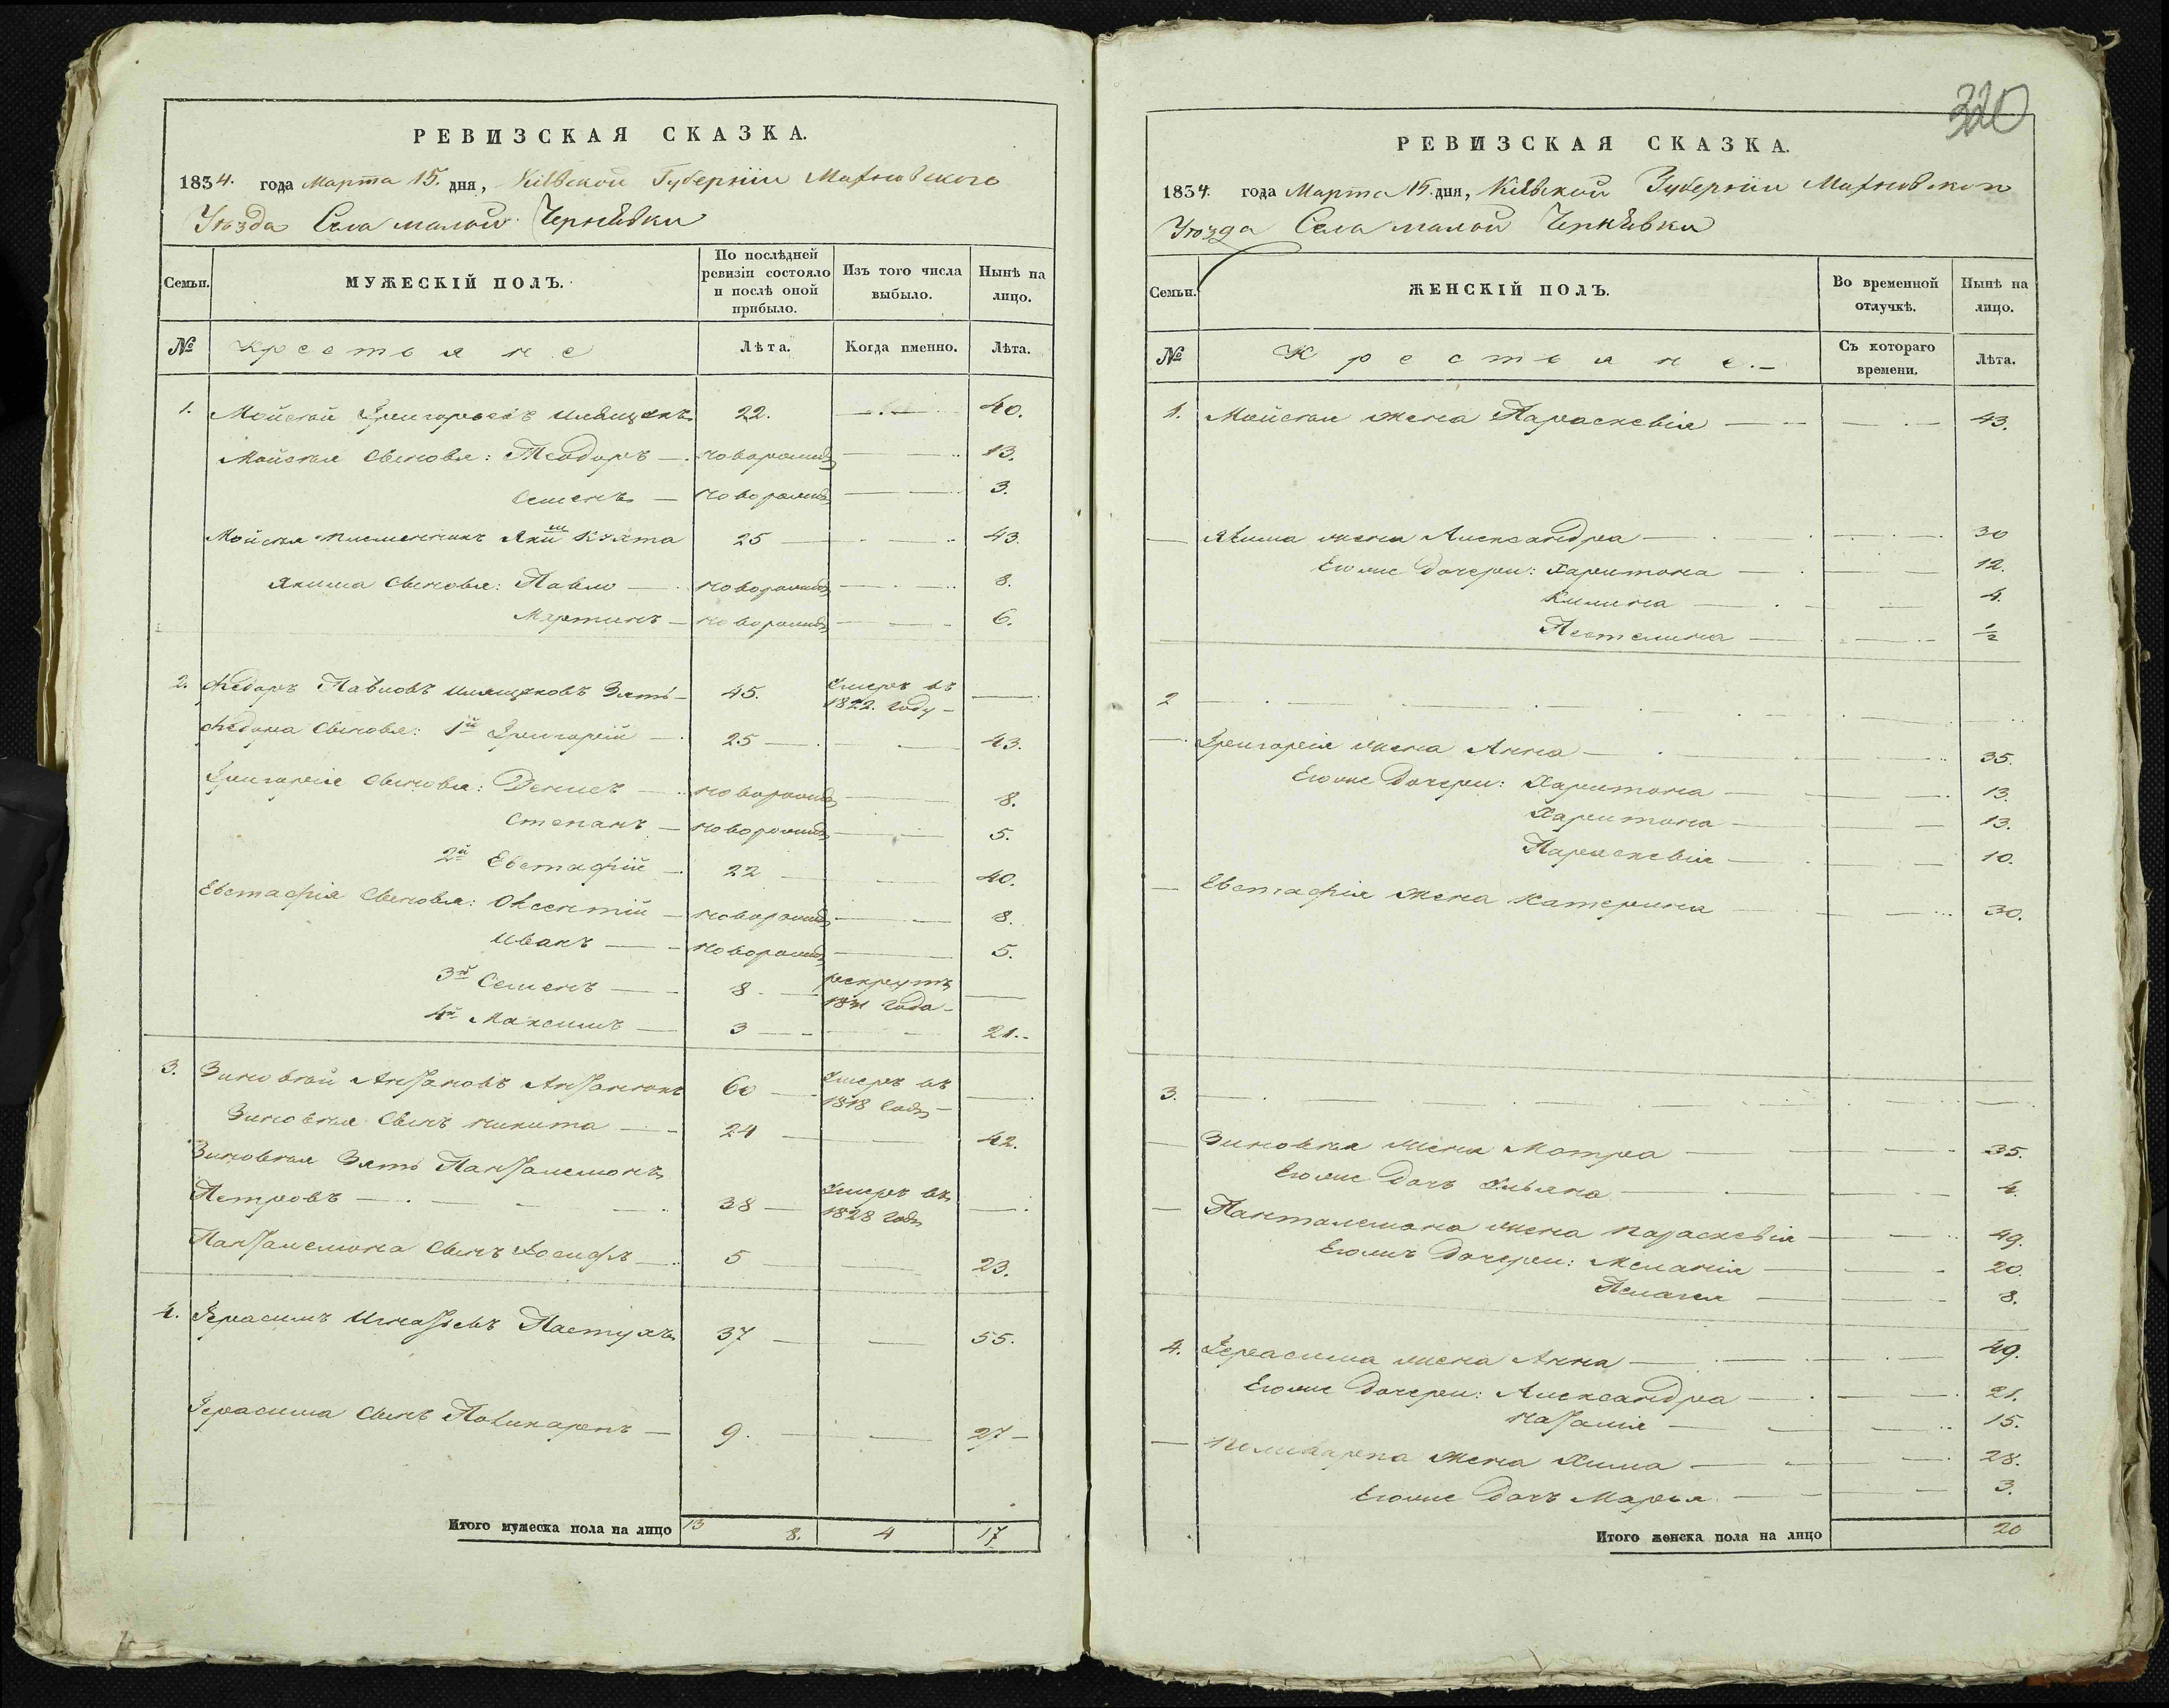 320
РЕВИЗСКАЯ СКАЗКА.
1834. года Марта 15. дня, Кіевской Губерніи Махновского
Уѣзда Села малой Чернѣвки
Семьи.
МУЖЕСКІЙ ПОЛЪ.
По послѣдней ревизіи состояло и послѣ оной прибыло.
Изъ того числа выбыло.
Нынѣ на лицо.
№ Крестьяне Лѣта. Когда именно. Лѣта.
1. Мойсей Григорьевъ 22. 40.
Мойсея Сыновья: Теодоръ новорожд 13.
Семенъ новорожд 3.
Мойсея племенникъ Яким 25 43.
Якима Сыновья: Павло новорожд 8.
Мартинъ новорожд 6.
2. Федоръ Павловъ Зять 45. Умеръ въ 1822. году
Федора Сыновья: 1й Григорій 25 43.
Григорія Сыновья: Денисъ новорожд 8.
Степанъ новорожд 5.
2й Евстафій 22 40.
Евстафія Сыновья: Овсентій новорожд 8.
Иванъ новорожд 5.
3й Семенъ 8 рекрутъ 1831 года
4й Максимъ 3 21.
3. Зиновей 60 Умеръ въ 1818 году
Зиновея Сынъ никита 24 42.
Зиновея Зять Панталемонъ
Петровъ 38 Умеръ въ 1828 году
Панталемона Сынъ Іосифъ 5 23.
4. Герасимъ Игнатьевъ Пастухъ 37 55.
Герасима Сынъ Поликарпъ 9. 27
Итого мужеска пола на лицо 13 8. 4 17
РЕВИЗСКАЯ СКАЗКА.
1834. года Марта 15. дня, Кіевской Губерніи Махновского
Уѣзда Села малой Чернѣвки
Семьи.
ЖЕНСКІЙ ПОЛЪ.
Во временной отлучкѣ.
Нынѣ на лицо.
№ Крестьяне. Съ котораго времени. Лѣта.
1. Мойсея жена Параскевія 43.
Якима жена Александра 30
Егоже дочери: Харитона 12.
Килина 4.
1/2
2
Григорія жена Анна 35.
Егоже Дочери: Харитона 13.
Харитона 13.
Параскевія 10.
Евстафія жена Катерина 30.
3.
Зиновея жена Мотра 35.
Егоже дочъ Ульяна 4.
Панталемона жена Параскевія 49.
Егожъ дочери: Меланія 20.
Пелагея 8.
4. Герасима жена Анна 49.
Егоже дочери: Александра 21.
Наталія 15.
Поликарпа жена Хима 28.
Егоже дочъ Марья 3.
Итого женска пола на лицо 20